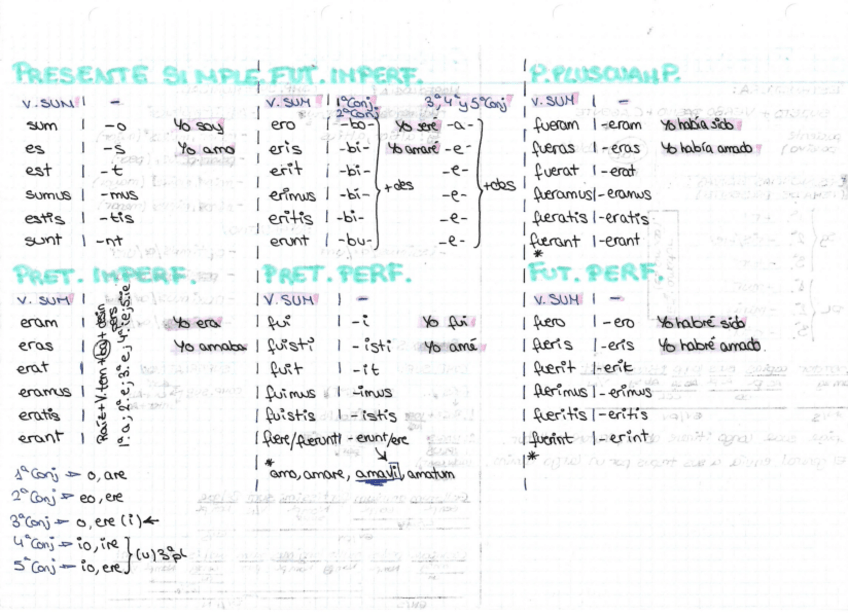 PRESENTE SIMPLE
V. SUM | -
sum Yo soy
es -s Yo amo
est -t
sumus -mus
estis -tis
sunt -nt
FUT. IMPERF.
V. SUM | 1ªConj 2ªConj 3ª,4ª y 5ªConj
ero -bo- Yo seré -a-
eris -bi- Yo amaré -e-
erit -bi- -e-
erimus -bi- +des -e- +des
eritis -bi- -e-
erunt -bu- -e-
P. PLUSCUAMP.
V. SUM | -
fueram | -eram Yo había sido
fueras | -eras Yo había amado
fuerat | -erat
fueramus | -eramus
fueratis | -eratis
fuerant | -erant
*
PRET. IMPERF.
V. SUM | -
eram Yo era
eras Yo amaba
erat
eramus
eratis
erant
Raíz + V.tem + ba + desin pers
1ª:a; 2ª:e; 3ª:e; 4ª:ie; 5:ie
PRET. PERF.
V. SUM | -
fui | -i Yo fui
fuisti | -isti Yo amé
fuit | -it
fuimus | -imus
fuistis | -istis
fuere/fuerunt | -erunt/ere
*amo, amare, amavi, amatum
FUT. PERF.
V. SUM | -
fuero | -ero Yo habré sido
fueris | -eris Yo habré amado.
fuerit | -erit
fuerimus | -erimus
fueritis | -eritis
fuerint | -erint
*
1ªConj ⇒ o, are
2ªConj ⇒ eo, ere
3ªConj ⇒ o, ere (i) ←
4ªConj ⇒ io, ire
5ªConj ⇒ io, ere
(u) 3ªpl